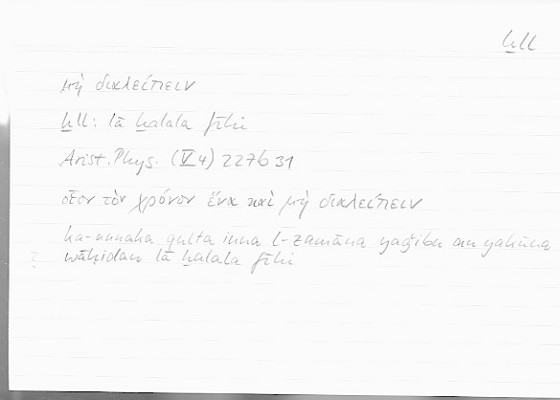 ḫll
μὴ διαλείπειν
ḫll: lā ḫalala fīhi
Arist. Phys. (V 4) 227b31
οἷον τὸν χρόνον ἕνα καὶ μὴ διαλείπειν
ka-annaka qulta inna l-zamāna yaǧibu an yakūna
? wāḥidan lā ḫalala fīhi